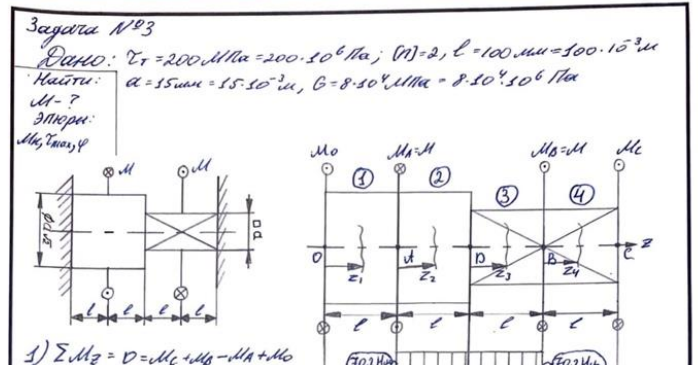 Задача №3
Дано: τт = 200 МПа = 200·10⁶ Па; [n]=2, l = 100 мм = 100·10⁻³ м
Найти: a = 15 мм = 15·10⁻³ м, G = 8·10⁴ МПа = 8·10⁴·10⁶ Па
М-?
Эпюры:
Мк, τmax, φ
M M
M₀ M_A=M M_B=M M_C
① ② ③ ④
□a
O A D B C z
z₁ z₂ z₃ z₄
l l l l
l l l l
1) ΣM_Z = 0 = M_C + M_B − M_A + M₀